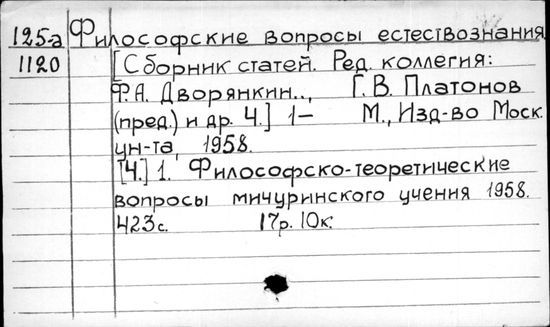 125-а Философские вопросы естествознания
1120 [Сборник статей. Ред. коллегия:
Ф.А. Дворянкин.., Г.В. Платонов
(пред.) и др. Ч.] 1— М., Изд-во Моск.
ун-та, 1958.
[Ч.] 1. Философско-теоретические
вопросы мичуринского учения 1958.
423с. 17р. 10к.